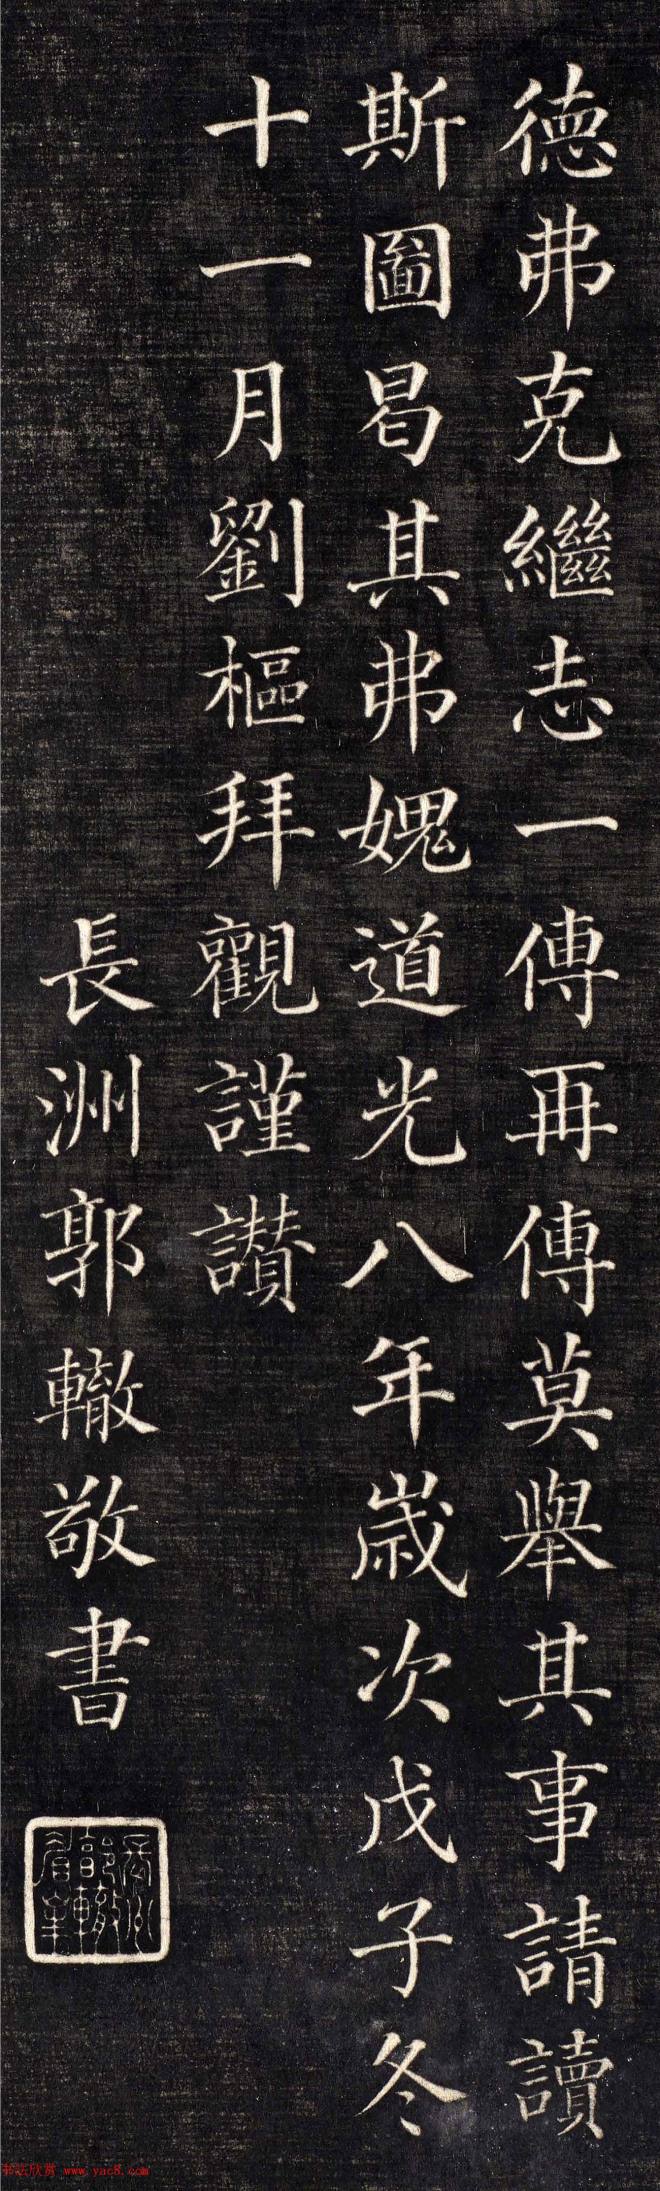 德弗克繼志一傳再傳莫舉其事請讀
斯圖曷其弗媿道光八年歲次戊子冬
十一月劉樞拜觀謹讚
長洲郭轍敬書
书法欣赏 www.yac8.com